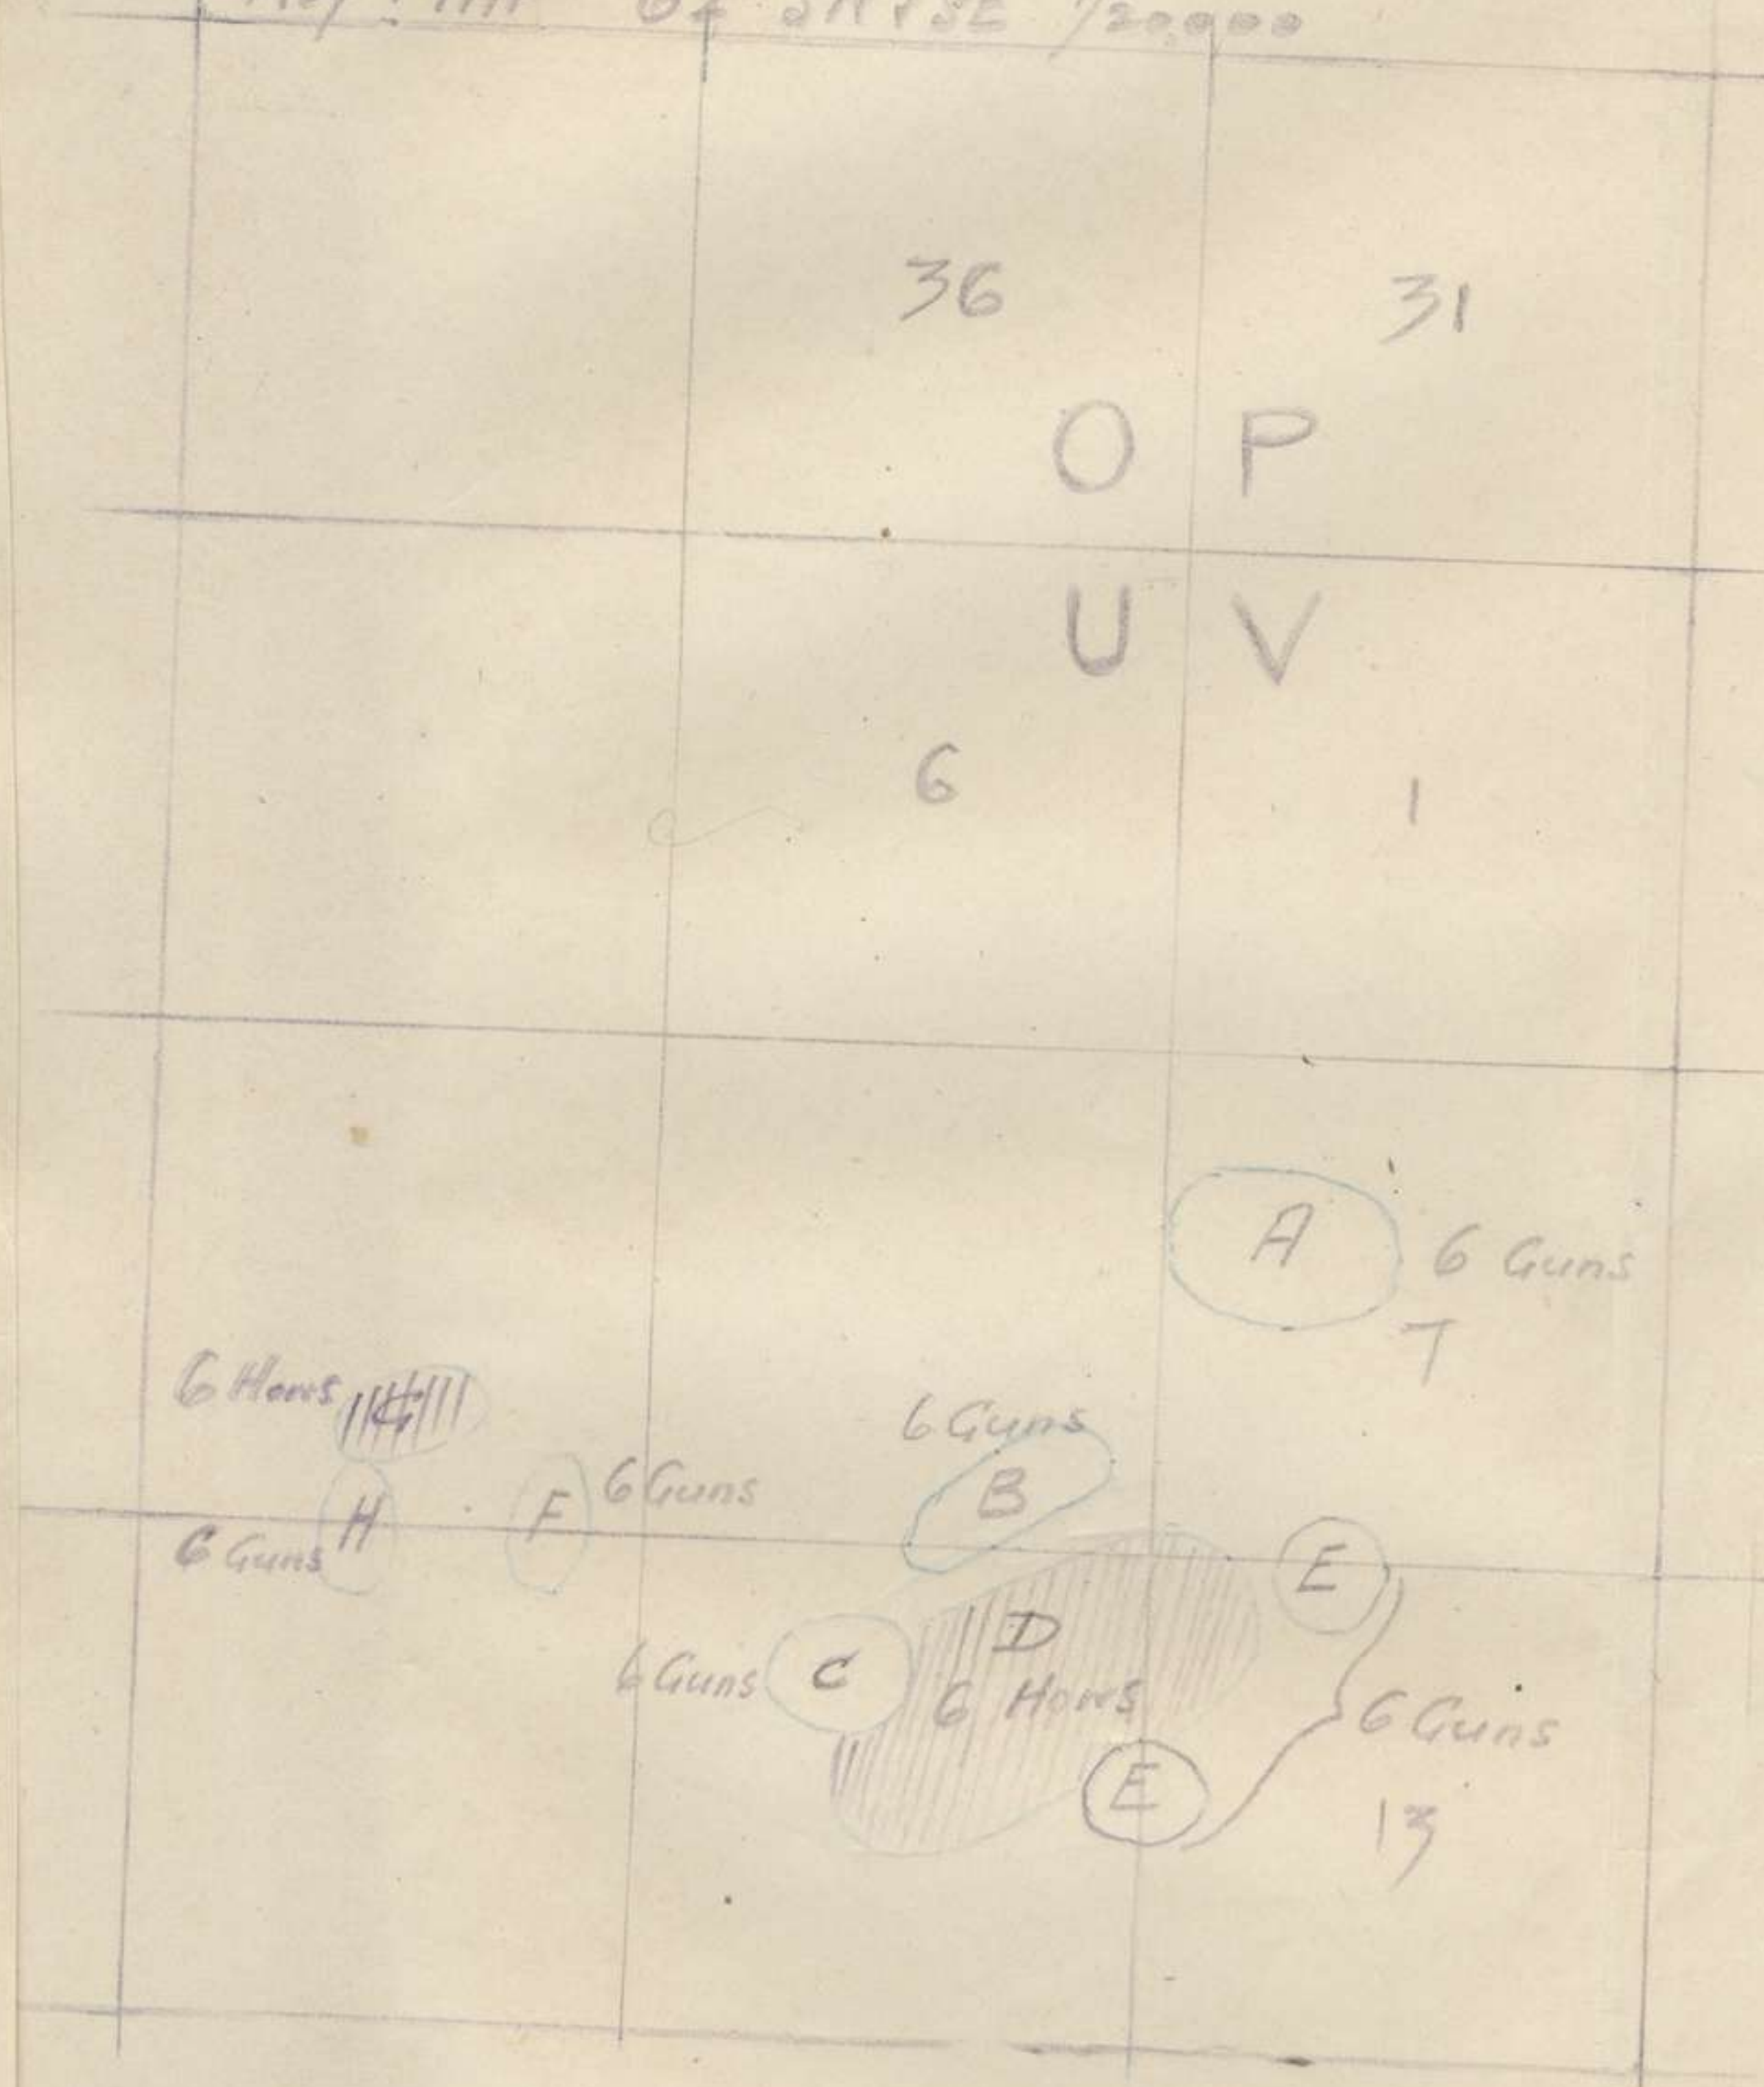 1/20,000
36 31
O P
U V
6 1
A 6 Guns
7
6 Hows G
6 Guns
B
H F 6 Guns
6 Guns
E
D
6 Guns C 6 Hows
6 Guns
E
13